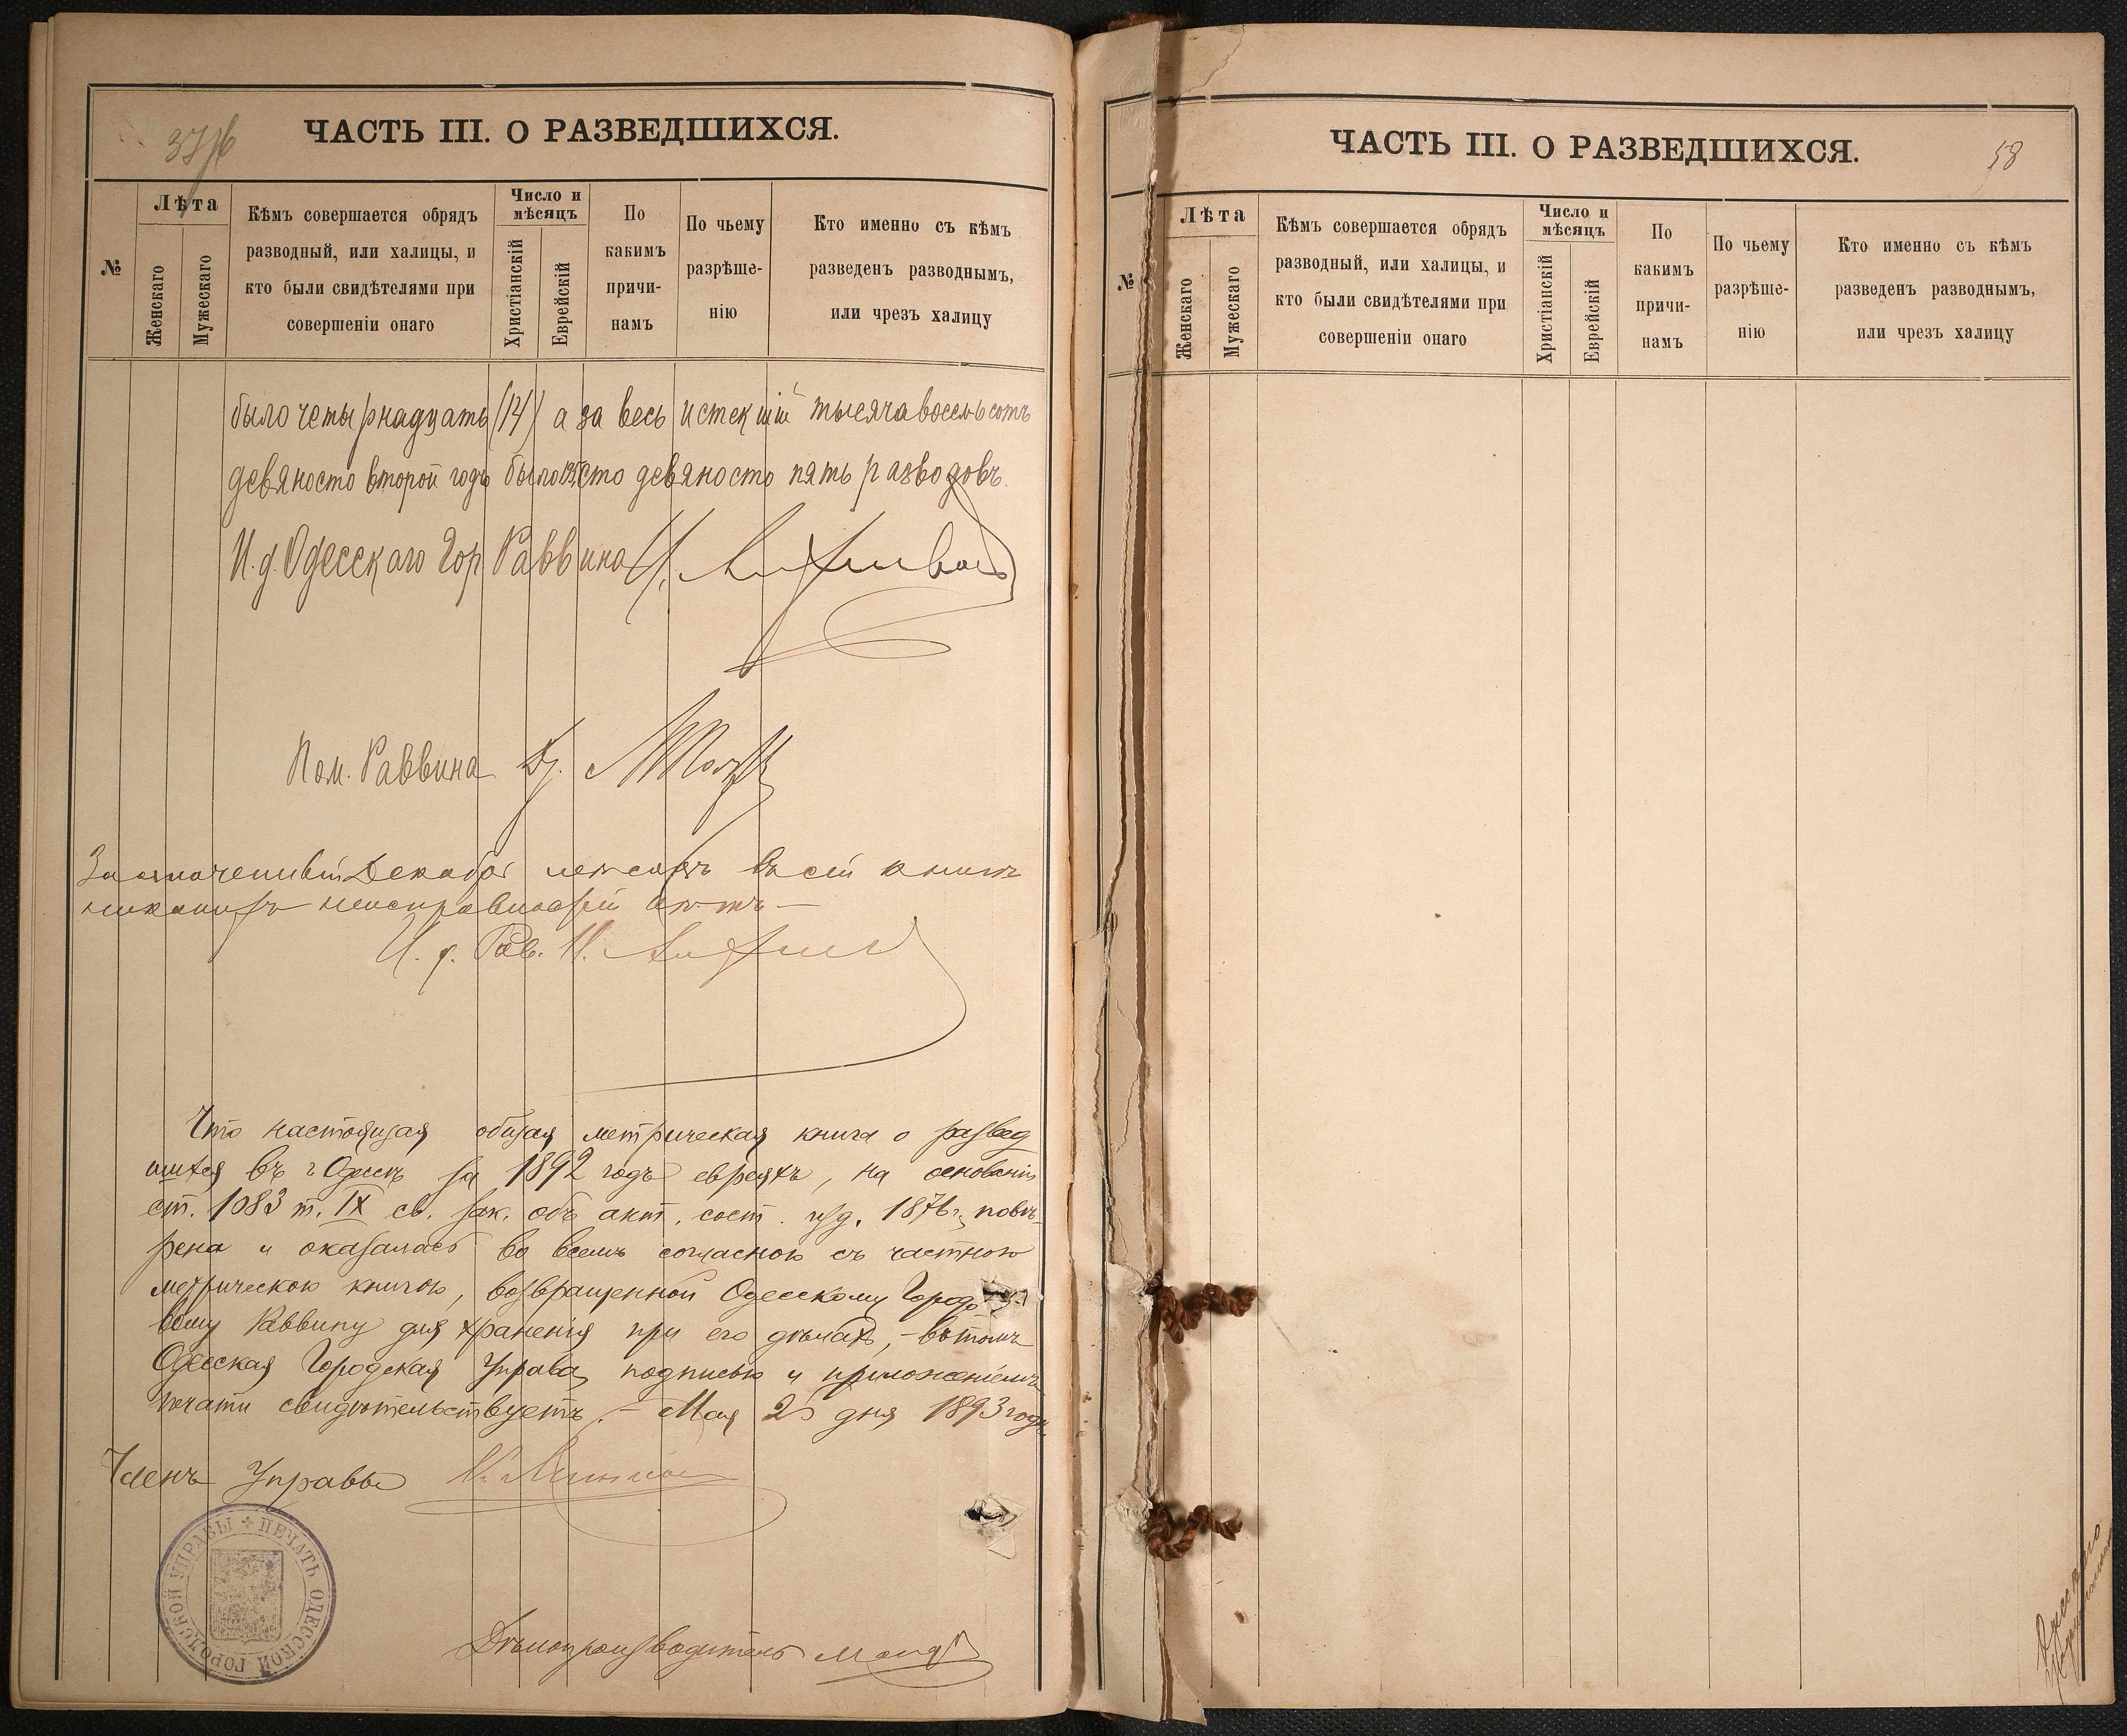 ЧАСТЬ III. О РАЗВЕДШИХСЯ.
№
Лѣта
Женскаго
Мужескаго
Кѣмъ совершается обрядъ
разводный, или халицы, и
кто были свидѣтелями при
совершеніи онаго
Число и
мѣсяцъ
Христіанскій
Еврейскій
По
какимъ
причи-
намъ
По чьему
разрѣше-
нію
Кто именно съ кѣмъ
разведенъ разводнымъ,
или чрезъ халицу
было четырнадцать (14) а за весь истекшій тысяча восемьсотъ
девяносто второй годъ было 195, сто девяносто пять разводовъ.
И. д. Одесскаго Гор Раввина
Пом. Раввина Др.
За означенный Декабрь мѣсяцъ въ сей книгѣ
никакихъ неисправностей нѣтъ —
И. д. Рав.
Что настоящая общая метрическая книга о развед
шихся въ г Одессѣ за 1892 годъ евреяхъ, на основаніи
ст. 1083 т. IX св. зак. объ акт. сост. изд. 1876 г., повѣ-
рена и оказалась во всемъ согласною съ частною
метрическою книгою, возвращенной Одесскому Городо
вому Раввину для храненія при его дѣлахъ, - въ томъ
Одесская Городская Управа подписью и приложеніемъ
печати свидѣтельствуетъ. - Мая 25 дня 1893 года
Членъ Управы
ПЕЧАТЬ ОДЕССКОЙ ГОРОДСКОЙ УПРАВЫ
Дѣлопроизводитель
ЧАСТЬ III. О РАЗВЕДШИХСЯ.
58
№
Лѣта
Женскаго
Мужескаго
Кѣмъ совершается обрядъ
разводный, или халицы, и
кто были свидѣтелями при
совершеніи онаго
Число и
мѣсяцъ
Христіанскій
Еврейскій
По
какимъ
причи-
намъ
По чьему
разрѣше-
нію
Кто именно съ кѣмъ
разведенъ разводнымъ,
или чрезъ халицу